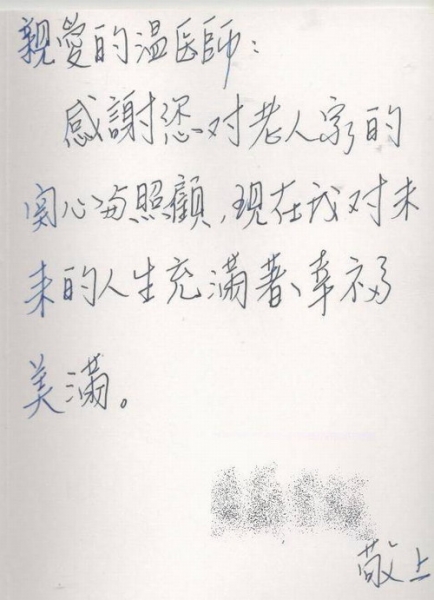 親愛的温医師：
感謝您对老人家的
関心与照顧，现在我对未
来的人生充滿著幸福
美滿。
敬上